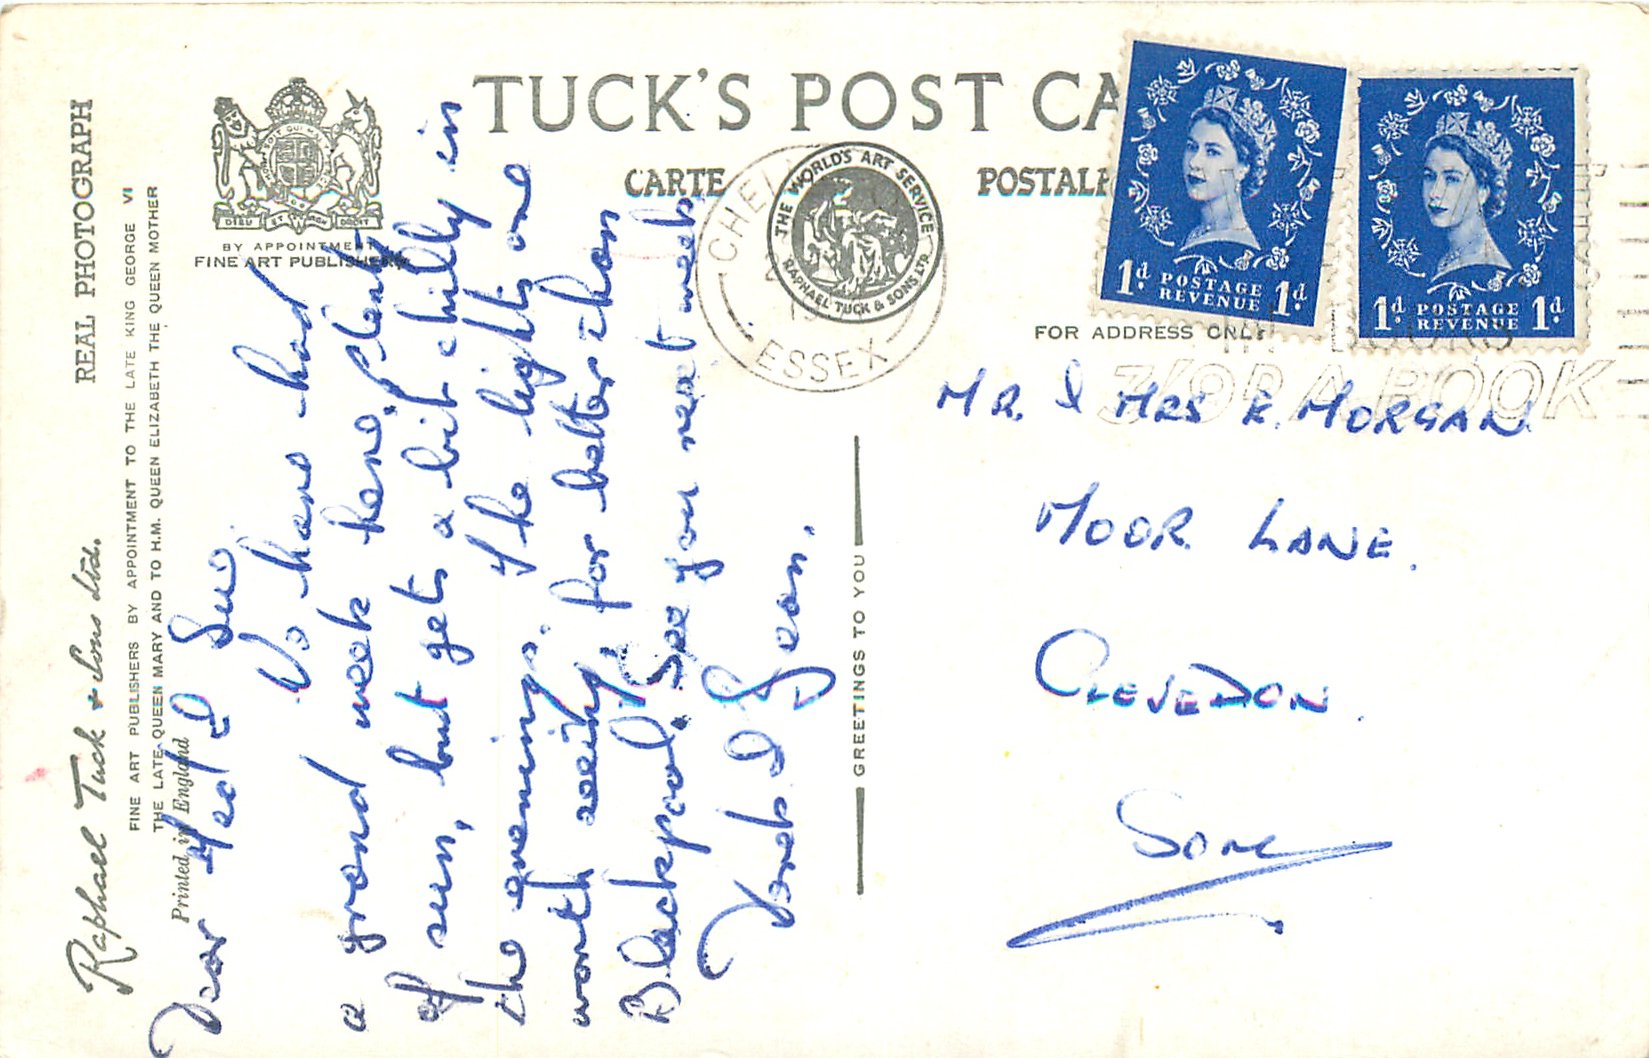 TUCK'S POST CA
CARTE POSTALE
REAL PHOTOGRAPH
Raphael Tuck & Sons Ltd.
FINE ART PUBLISHERS BY APPOINTMENT TO THE LATE KING GEORGE VI
THE LATE QUEEN MARY AND TO H.M. QUEEN ELIZABETH THE QUEEN MOTHER
Printed in England
DIEU ET MON DROIT
BY APPOINTMENT
FINE ART PUBLISHERS
THE WORLD'S ART SERVICE
RAPHAEL TUCK & SONS LTD
CHEL
ESSEX
1d POSTAGE REVENUE 1d
1d POSTAGE REVENUE 1d
IN BOOKS
3/9D A BOOK
FOR ADDRESS ONLY
GREETINGS TO YOU
Dear & Sue,
We have had
a grand week here, plenty
of sun, but gets a bit chilly in
the evenings. The lights are
worth seeing, far better than
Blackpool. See you next week,
& Jean.
MR. & MRS MORGAN
MOOR LANE.
CLEVEDON.
SOM